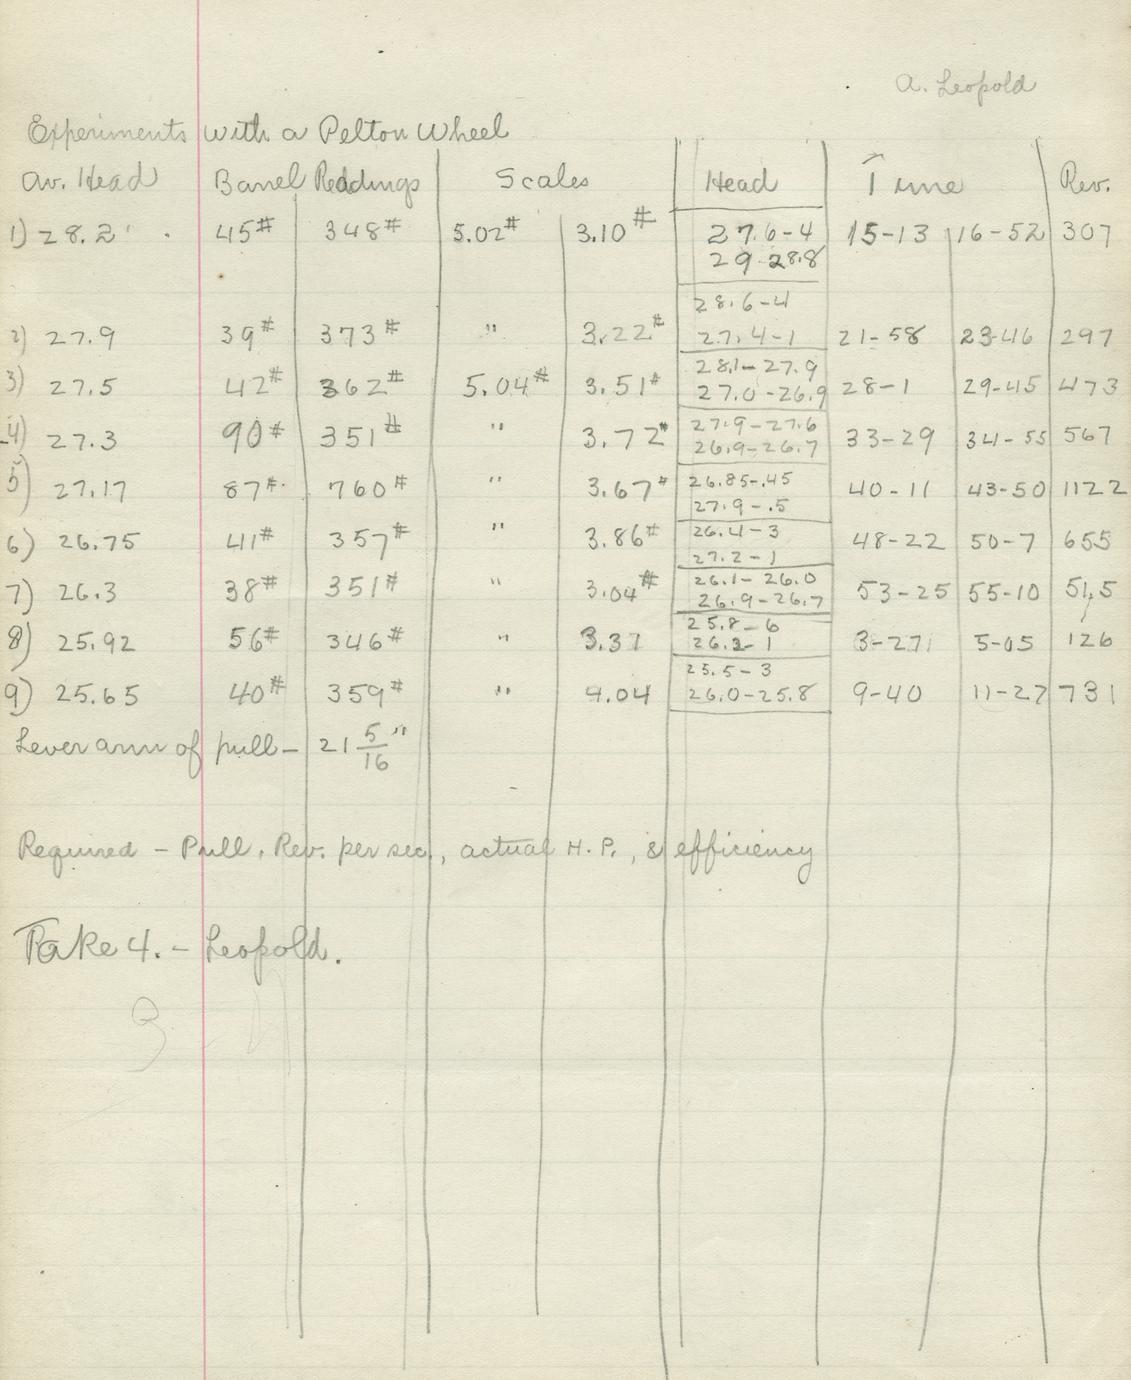 A. Leopold
Experiments with a Pelton Wheel
Av. Head Barrel Readings Scales Head Time Rev.
1) 28.2' 45# 348# 5.02# 3.10# 27.6-4 15-13 16-52 307
29-28.8
28.6-4
2) 27.9 39# 373# " 3.22# 27.4-1 21-58 23-46 297
28.1-27.9
3) 27.5 42# 362# 5.04# 3.51# 27.0-26.9 28-1 29-45 473
27.9-27.6
4) 27.3 90# 351# " 3.72# 26.9-26.7 33-29 34-55 567
26.85-.45
5) 27.17 87# 760# " 3.67# 27.9-.5 40-11 43-50 1122
26.4-3
6) 26.75 41# 357# " 3.86# 27.2-1 48-22 50-7 655
26.1-26.0
7) 26.3 38# 351# " 3.04# 26.9-26.7 53-25 55-10 515
25.8-6
8) 25.92 56# 346# " 3.37 26.2-1 3-27 5-05 126
25.5-3
9) 25.65 40# 359# " 4.04 26.0-25.8 9-40 11-27 731
Lever arm of pull- 21 5/16"
Required - Pull, Rev. per sec, actual H.P., & efficiency
Take 4. - Leopold.